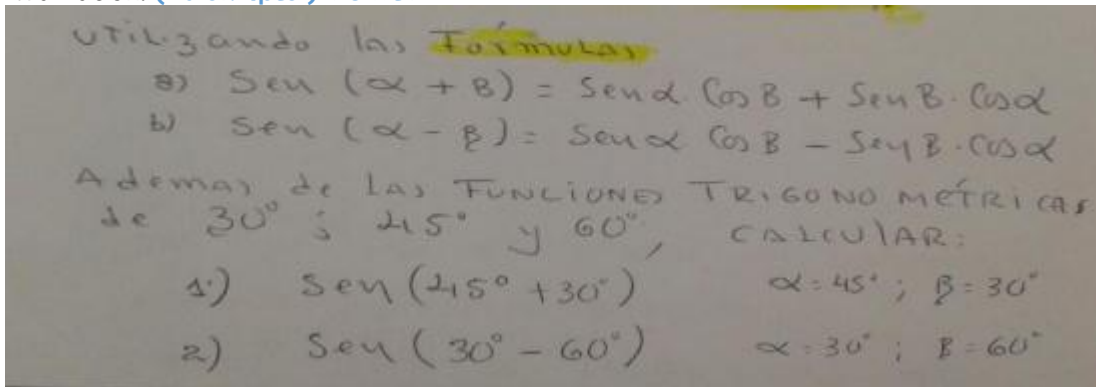 Utilizando las Fórmulas
a) Sen (α + B) = Senα. Cos B + Sen B. Cosα
b) Sen (α - β) = Senα Cos B - Sen B. Cosα
Ademas de las FUNCIONES TRIGONOMÉTRICAS
de 30° ; 45° y 60°, CALCULAR:
1.) Sen (45° + 30°) α = 45° ; β = 30°
2) Sen (30° - 60°) α = 30° ; B = 60°